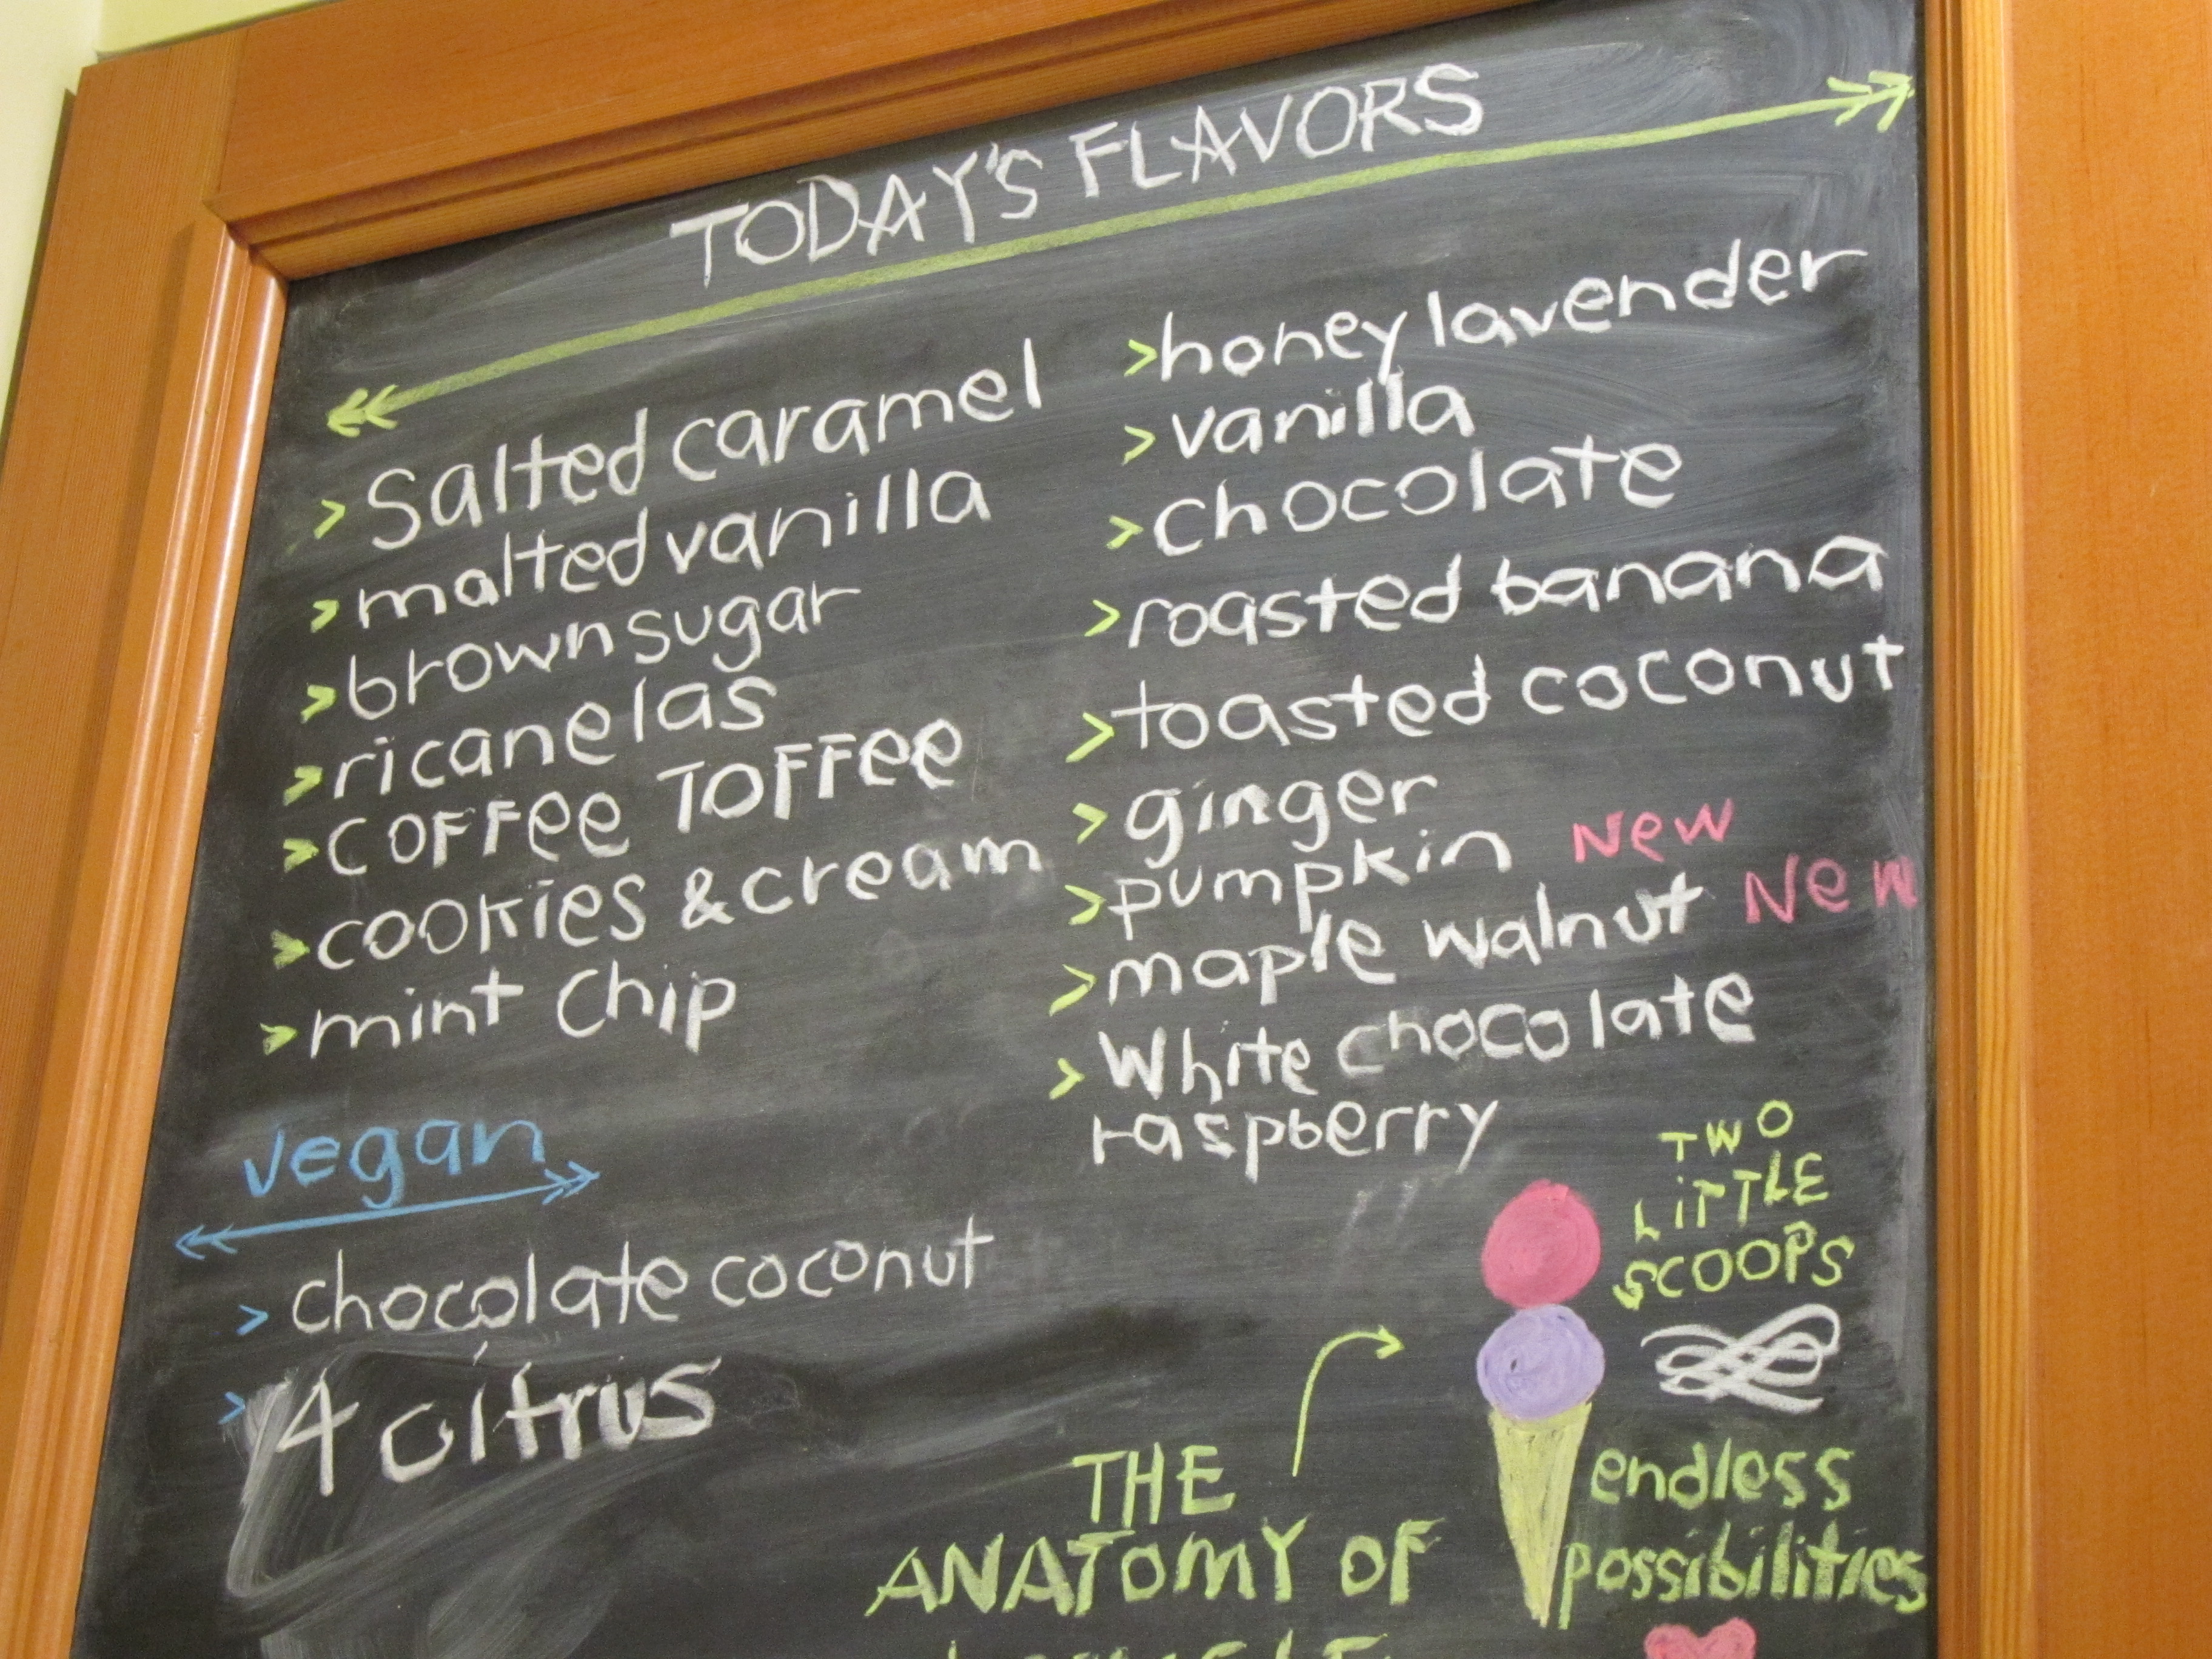 TODAY'S FLAVORS
> Salted caramel
> malted vanilla
> brown sugar
> ricanelas
> COFFee TOFFee
> cookies & cream
> mint Chip
> honey lavender
> vanilla
> chocolate
> roasted banana
> toasted coconut
> ginger
> pumpkin New
> maple walnut New
> White chocolate
raspberry
vegan
> chocolate coconut
> 4 citrus
TWO
LiTTLE
SCOOPS
endless
possibilities
THE
ANATOMY OF